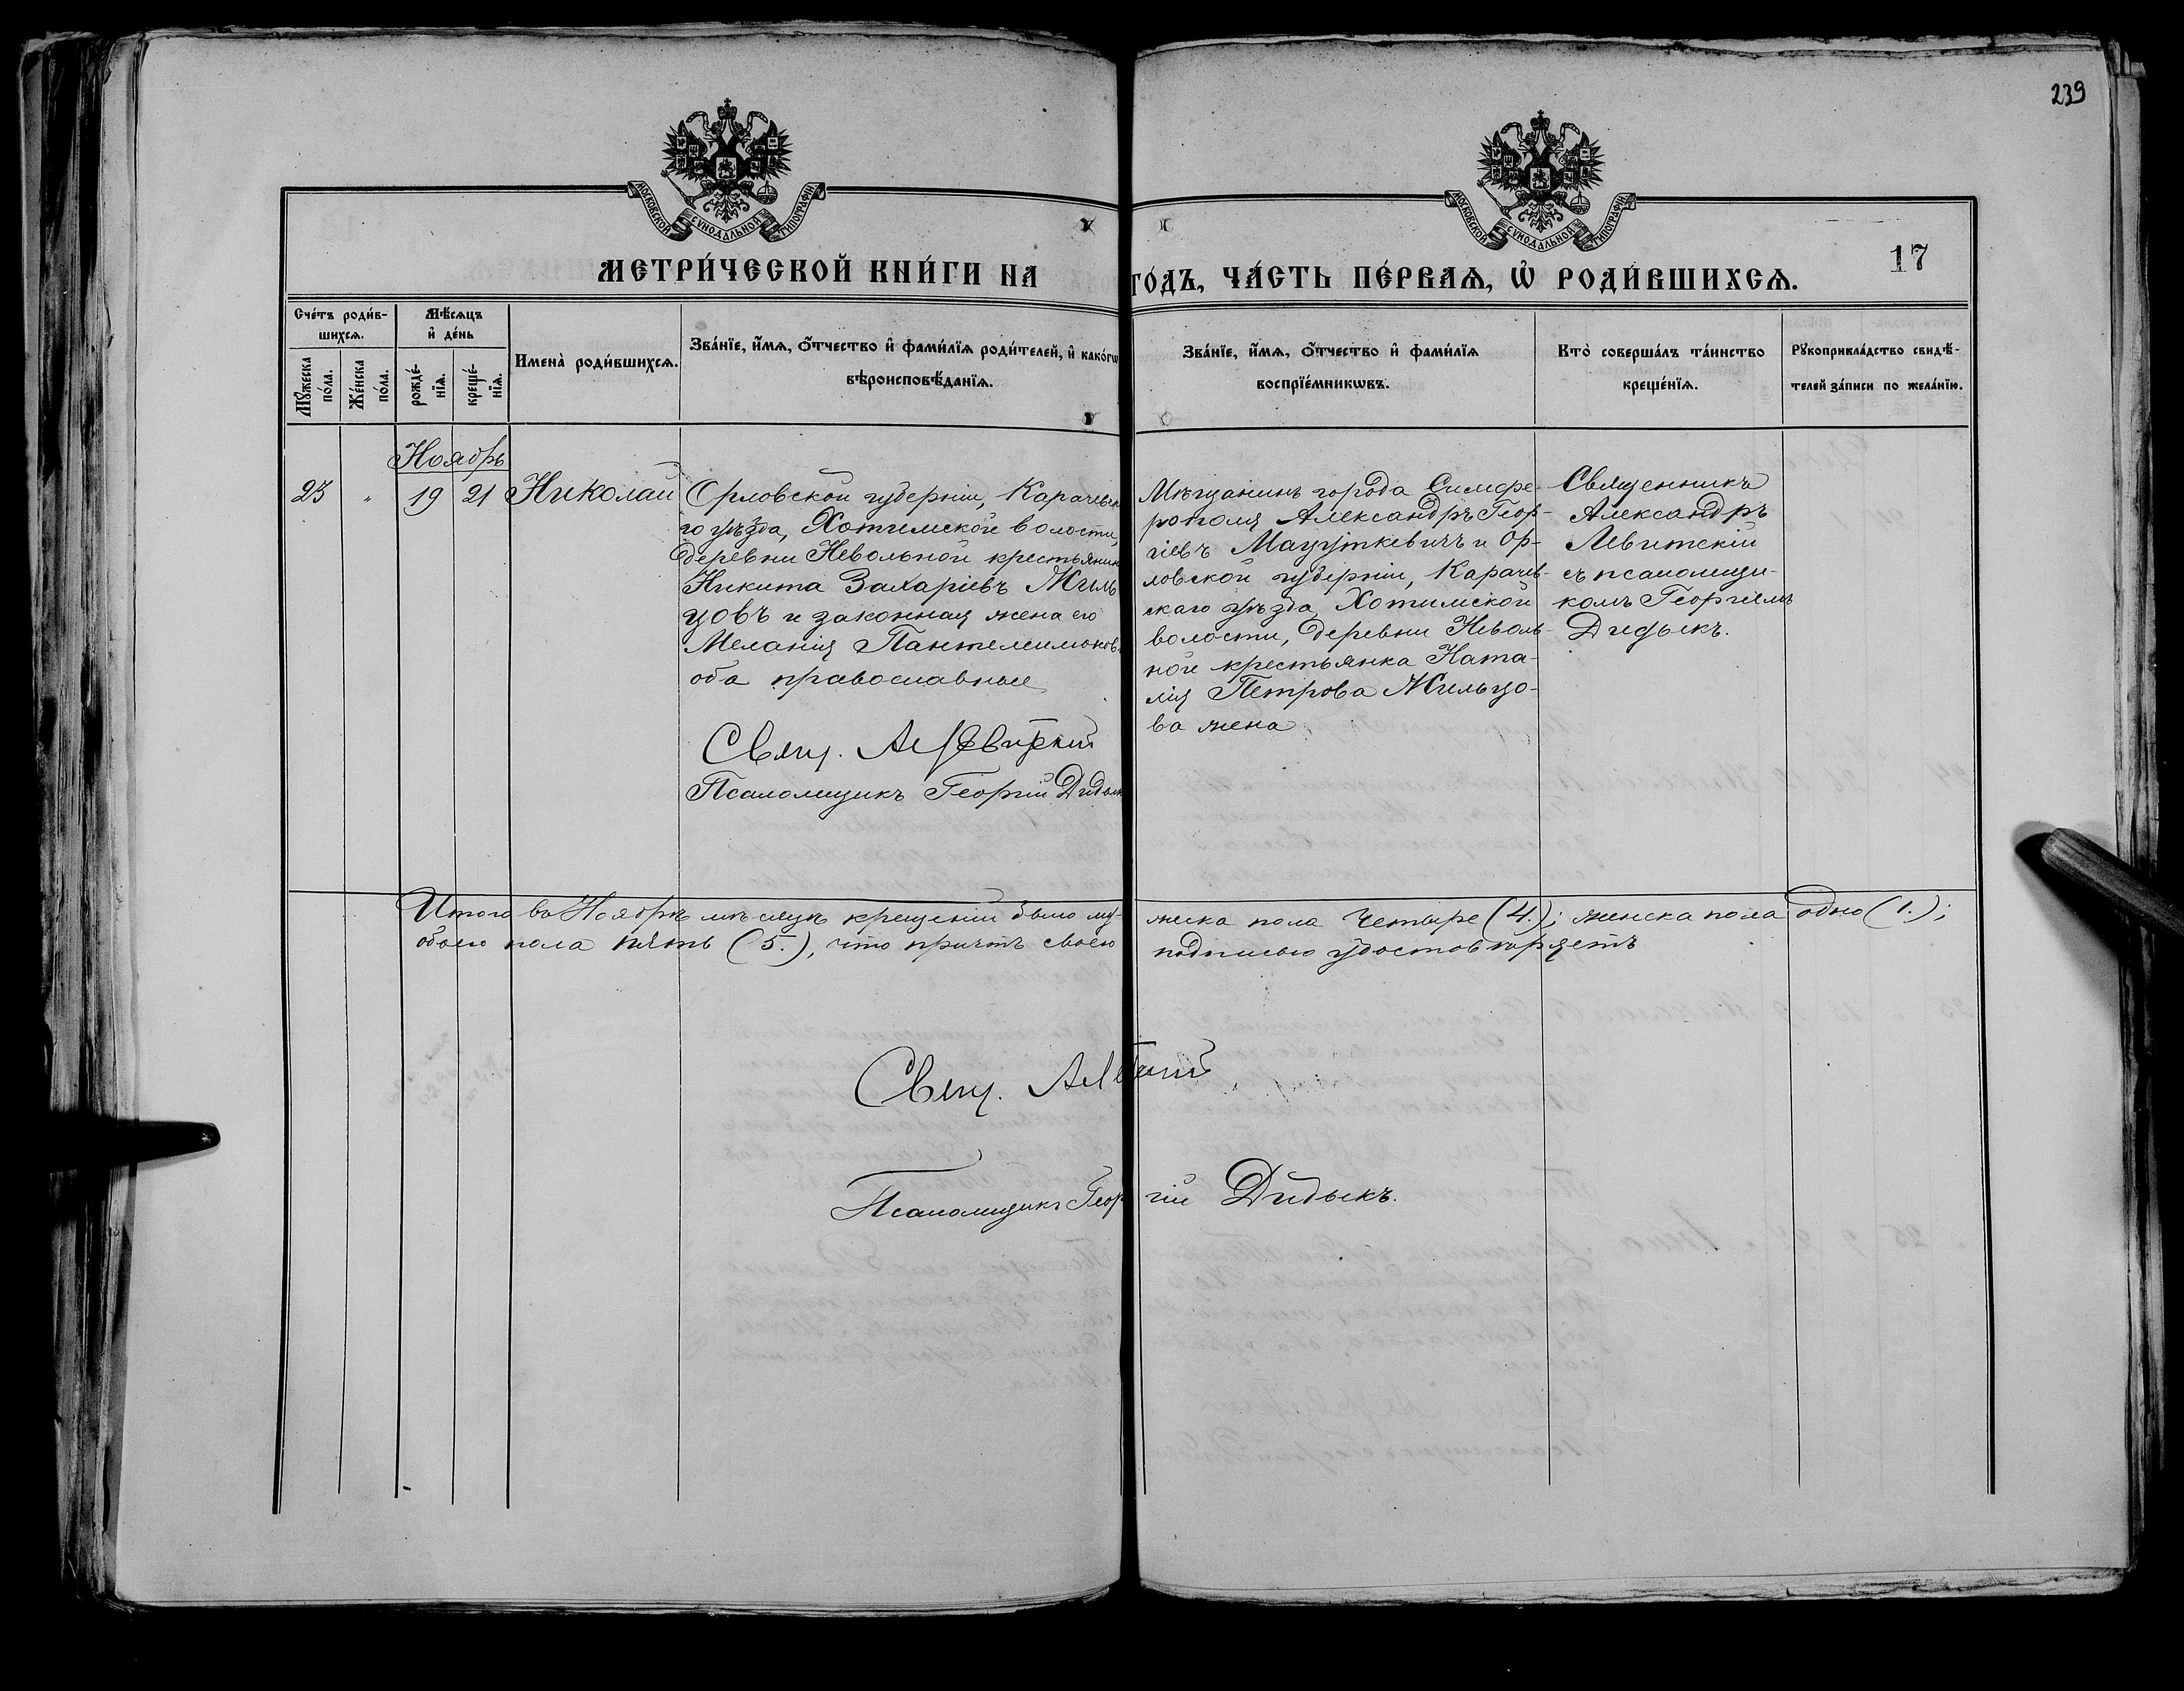 239
МОСКОВСКОЙ СѴНОДАЛЬНОЙ ТИПОГРАФІИ
МОСКОВСКОЙ СѴНОДАЛЬНОЙ ТИПОГРАФІИ
17
МЕТРИ́ЧЕСКОЙ КНИ́ГИ НА ГО́ДЪ, ЧА́СТЬ ПЕ́РВАѦ, Ѡ҆ РОДИ́ВШИХСѦ.
Сче́тъ роди́в-
шихсѧ.
Мꙋ́жеска
по́ла.
Же́нска
по́ла.
Мѣ́сѧцъ
и҆ де́нь
рожде́-
нїѧ.
креще́-
нїѧ.
Имена̀ роди́вшихсѧ.
Зва́нїе, и҆́мѧ, ѻ҆́тчество и҆ фами́лїѧ роди́телей, и҆ како́гѡ
вѣроисповѣ́данїѧ.
Зва́нїе, и҆́мѧ, ѻ҆́тчество и҆ фами́лїѧ
воспрїе́мникѡвъ.
Кто̀ соверша́лъ та́инство
креще́нїѧ.
Рꙋкоприкла́дство свидѣ́-
телей за́писи по жела́нїю.
Ноябрь
23 " 19 21 Николай
Орловской губерніи, Карачевска
го уѣзда, Хотимской волости,
деревни Невольной крестьянин
Никита Захаріевъ Жиль
цовъ и законная жена его
Меланія Пантелеимонов
оба православные
Свящ. Ал Левитскій
Псаломщикъ Георгій Дидык
Мѣщанинъ города Симфе-
рополя Александръ Геор-
гіевъ Мацуткевичъ и Ор-
ловской губерніи, Карачев-
скаго уѣзда Хотимской
волости, деревни Неволь-
ной крестьянка Ната-
лія Петрова Жильцо-
ва жена
Священникъ
Александръ
Левитскій
съ псаломщи-
комъ Георгіемъ
Дидыкъ.
Итого въ Ноябрѣ мѣсяцѣ крещеній было му- жеска пола четыре (4.); женска пола одно (1.);
обоего пола пять (5.), что причтъ своею подписью удостовѣряетъ
Свящ. Ал Левитскій
Псаломщикъ Георгій Дидыкъ.